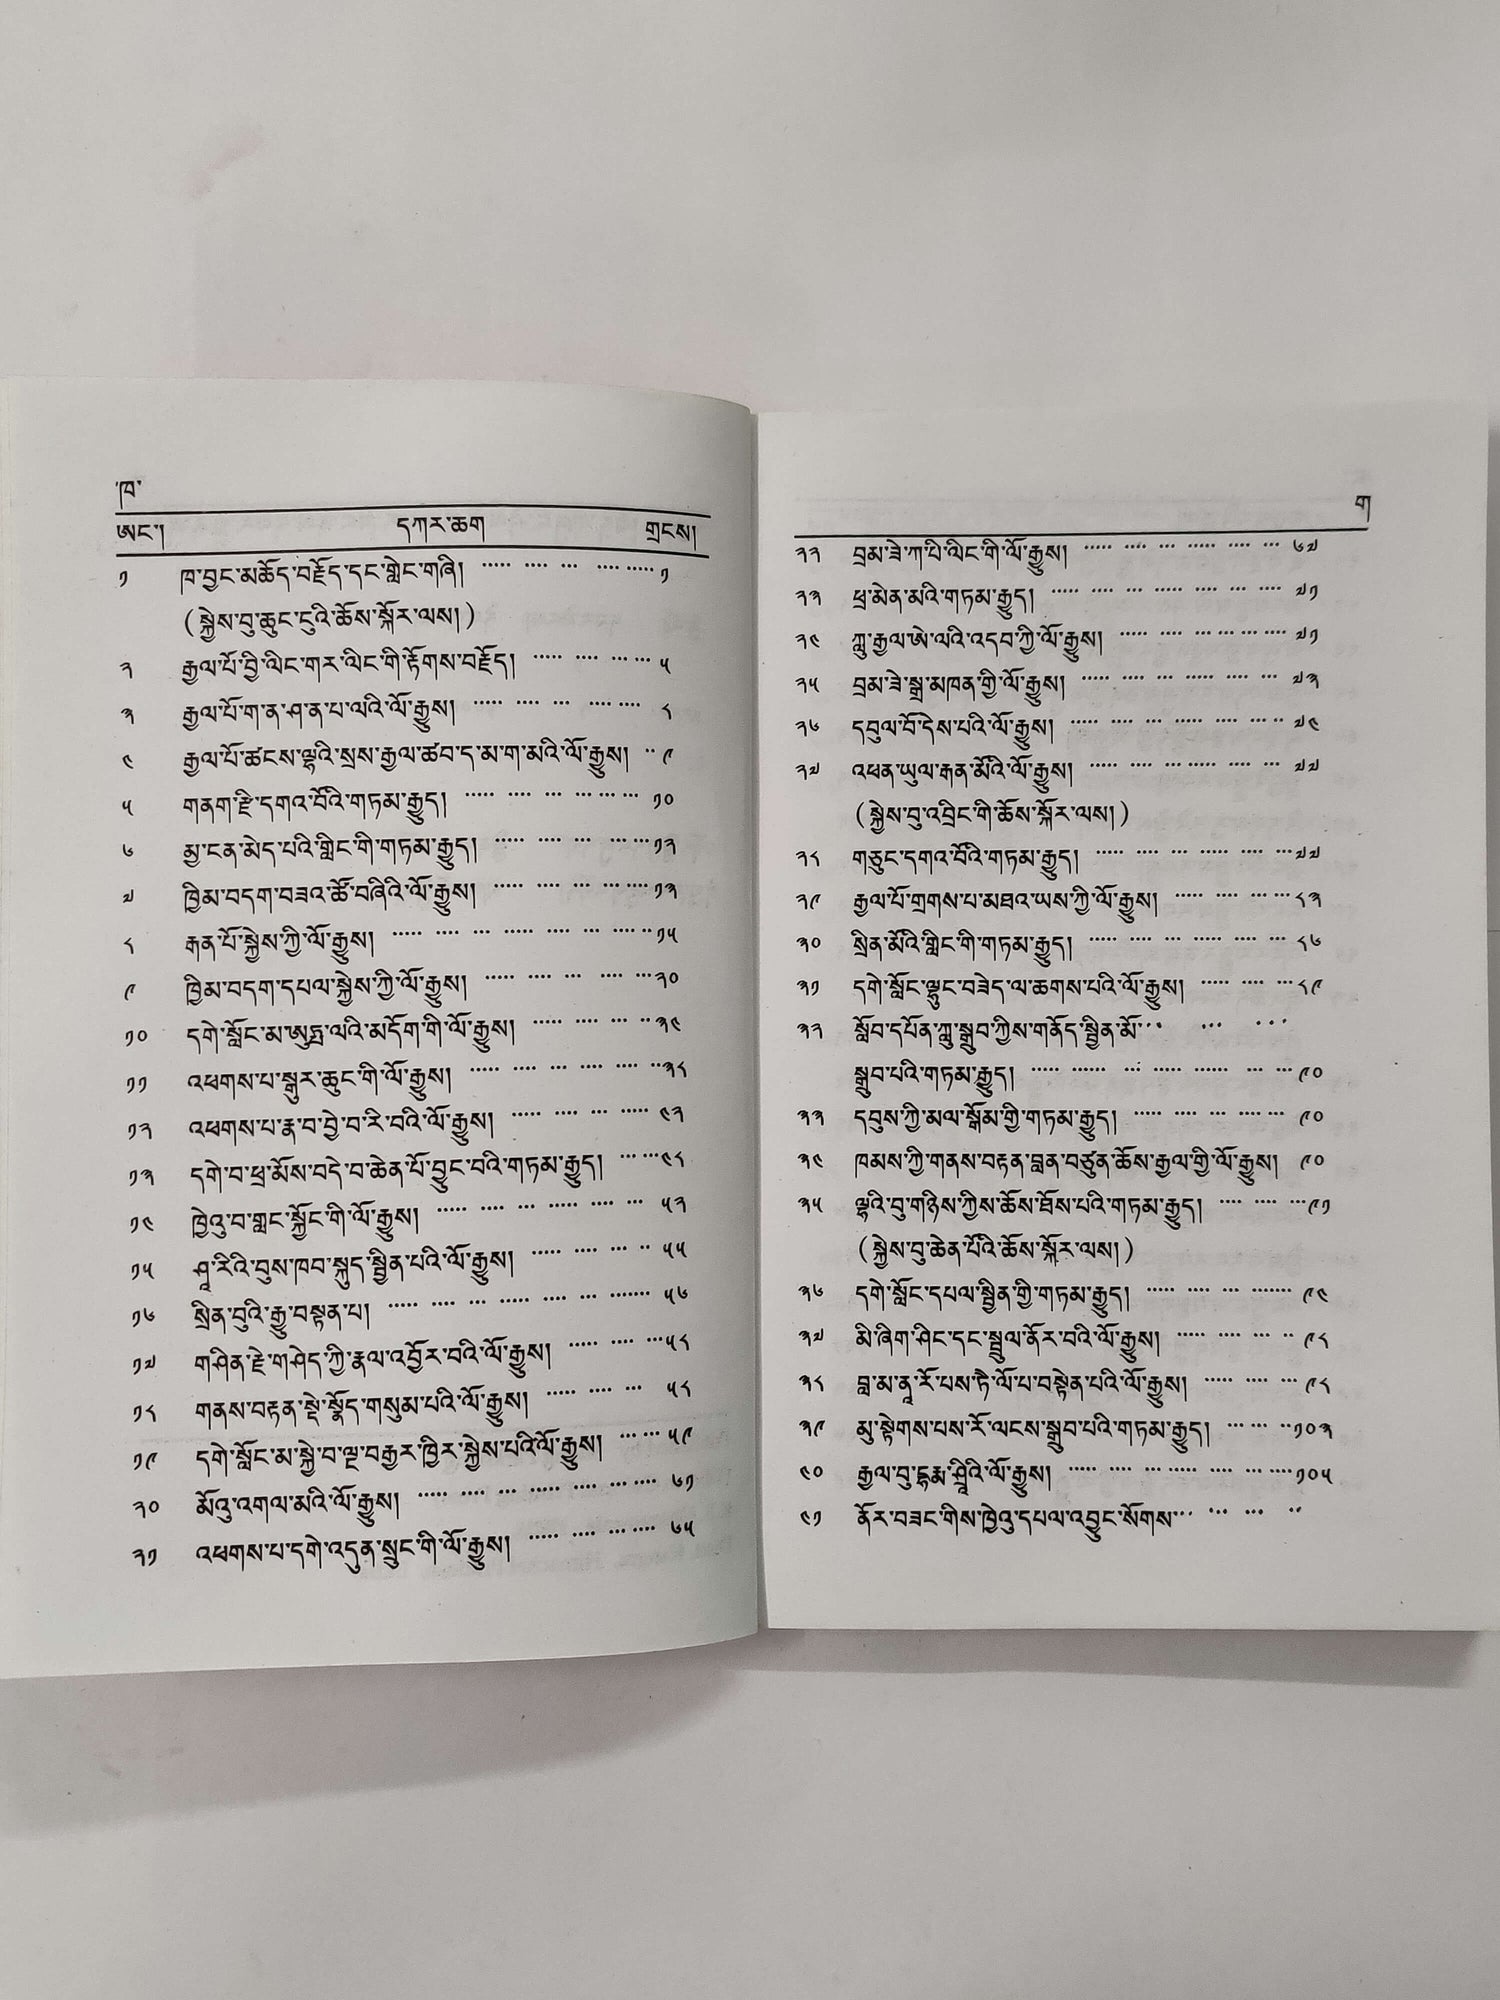 ཁ
ཨང་། དཀར་ཆག གྲངས།
༡ ཁ་བྱང་མཆོད་བརྗོད་དང་གླེང་གཞི། ..... .... ... .... ..... ༡
(སྐྱེས་བུ་ཆུང་ངུའི་ཆོས་སྐོར་ལས།)
༢ རྒྱལ་པོ་བྱི་ལིང་གར་ལིང་གི་རྟོགས་བརྗོད། ..... .... ... ... ༥
༣ རྒྱལ་པོ་ག་ན་ཤ་ན་པ་ལའི་ལོ་རྒྱུས། ..... .... ... .... .... ༨
༤ རྒྱལ་པོ་ཚངས་ལྷའི་སྲས་རྒྱལ་ཚབ་ད་མ་ག་མའི་ལོ་རྒྱུས། .. ༩
༥ གནག་རྫི་དགའ་བོའི་གཏམ་རྒྱུད། ..... .... ... ... ... ... ༡༠
༦ མྱ་ངན་མེད་པའི་གླིང་གི་གཏམ་རྒྱུད། ..... .... ... .... .... ༡༢
༧ ཁྱིམ་བདག་བཟའ་ཚོ་བཞིའི་ལོ་རྒྱུས། ..... .... ... .... .... ༡༣
༨ རྒན་པོ་སྐྱེས་ཀྱི་ལོ་རྒྱུས། ..... .... ... ..... .... ... .... .. ༡༥
༩ ཁྱིམ་བདག་དཔལ་སྐྱེས་ཀྱི་ལོ་རྒྱུས། ..... .... ... .... .... ༢༠
༡༠ དགེ་སློང་མ་ཨུཏྤ་ལའི་མདོག་གི་ལོ་རྒྱུས། ..... .... ... .... .. ༣༤
༡༡ འཕགས་པ་སྒུར་ཆུང་གི་ལོ་རྒྱུས། ..... .... ... .... .... .. ༣༨
༡༢ འཕགས་པ་རྣ་བ་བྱེ་བ་རི་བའི་ལོ་རྒྱུས། ..... .... ... ..... ༤༢
༡༣ དགེ་བ་ཕྲ་མོས་བདེ་བ་ཆེན་པོ་བྱུང་བའི་གཏམ་རྒྱུད། ... .... ༤༨
༡༤ ཁྱེའུ་བ་གླང་སྐྱོང་གི་ལོ་རྒྱུས། ..... .... ... ..... .... ... ༥༢
༡༥ ཤཱ་རིའི་བུས་ཁབ་སྐུད་སྦྱིན་པའི་ལོ་རྒྱུས། ..... .... ... .. ༥༥
༡༦ སྲིན་བུའི་རྒྱུ་བསྟན་པ། ..... .... ... ..... .... ... ....... ༥༦
༡༧ གཤིན་རྗེ་གཤེད་ཀྱི་རྣལ་འབྱོར་བའི་ལོ་རྒྱུས། ..... .... ... ༥༨
༡༨ གནས་བརྟན་སྡེ་སྣོད་གསུམ་པའི་ལོ་རྒྱུས། ..... .... ... ༥༨
༡༩ དགེ་སློང་མ་སྐྱེ་བ་ལྔ་བརྒྱར་ཁྱིར་སྐྱེས་པའི་ལོ་རྒྱུས། ... ... ༥༩
༢༠ མོའུ་འགལ་མའི་ལོ་རྒྱུས། ..... .... ... ..... .... ... .... ༦༡
༢༡ འཕགས་པ་དགེ་འདུན་སྲུང་གི་ལོ་རྒྱུས། ..... .... ... .... ༦༥
ག
༢༢ བྲམ་ཟེ་ཀ་པི་ལིང་གི་ལོ་རྒྱུས། ..... .... ... ..... .... ... ༦༧
༢༣ ཕྲ་མེན་མའི་གཏམ་རྒྱུད། ..... .... ... ..... .... ... .... ༧༡
༢༤ ཀླུ་རྒྱལ་ཨེ་ལའི་འདབ་ཀྱི་ལོ་རྒྱུས། ..... .... ... ... ... .... ༧༡
༢༥ བྲམ་ཟེ་སྒྲ་མཁན་གྱི་ལོ་རྒྱུས། ..... .... ... ..... .... ... ༧༣
༢༦ དབུལ་བོ་དེས་པའི་ལོ་རྒྱུས། ..... .... ... ..... .... ... .. ༧༤
༢༧ འཕན་ཡུལ་རྒན་མོའི་ལོ་རྒྱུས། ..... .... ... ..... .... ... ༧༧
(སྐྱེས་བུ་འབྲིང་གི་ཆོས་སྐོར་ལས།)
༢༨ གཅུང་དགའ་བོའི་གཏམ་རྒྱུད། ..... .... ... ..... .... ... ༧༧
༢༩ རྒྱལ་པོ་གྲགས་པ་མཐའ་ཡས་ཀྱི་ལོ་རྒྱུས། ..... .... ... ... ༨༣
༣༠ སྲིན་མོའི་གླིང་གི་གཏམ་རྒྱུད། ..... .... ... ..... .... ... ༨༦
༣༡ དགེ་སློང་ལྷུང་བཟེད་ལ་ཆགས་པའི་ལོ་རྒྱུས། ..... .... ... ༨༩
༣༢ སློབ་དཔོན་ཀླུ་སྒྲུབ་ཀྱིས་གནོད་སྦྱིན་མོ་... ... ...
སྒྲུབ་པའི་གཏམ་རྒྱུད། ..... ...... ... ..... ...... ... ... ༩༠
༣༣ དབུས་ཀྱི་མལ་སྒོམ་གྱི་གཏམ་རྒྱུད། ..... .... ... .... ... ༩༠
༣༤ ཁམས་ཀྱི་གནས་བརྟན་བླན་བཙུན་ཆོས་རྒྱལ་གྱི་ལོ་རྒྱུས། ༩༠
༣༥ ལྷའི་བུ་གཉིས་ཀྱིས་ཆོས་ཐོས་པའི་གཏམ་རྒྱུད། .... .... ... ༩༡
(སྐྱེས་བུ་ཆེན་པོའི་ཆོས་སྐོར་ལས།)
༣༦ དགེ་སློང་དཔལ་སྦྱིན་གྱི་གཏམ་རྒྱུད། ..... .... ... ....... ༩༤
༣༧ མི་ཞིག་ཤིང་དང་སྦྲུལ་ནོར་བའི་ལོ་རྒྱུས། ..... .... ... .. ༩༨
༣༨ བླ་མ་ནཱ་རོ་པས་ཏེ་ལོ་པ་བསྟེན་པའི་ལོ་རྒྱུས། ..... .... ... ༩༨
༣༩ མུ་སྟེགས་པས་རོ་ལངས་སྒྲུབ་པའི་གཏམ་རྒྱུད། ... ... .. ༡༠༣
༤༠ རྒྱལ་བུ་དྷརྨ་ཤྲཱིའི་ལོ་རྒྱུས། ..... .... ... ..... .... ... .... ༡༠༥
༤༡ ནོར་བཟང་གིས་ཁྱེའུ་དཔལ་འབྱུང་སོགས་... ... ... ..